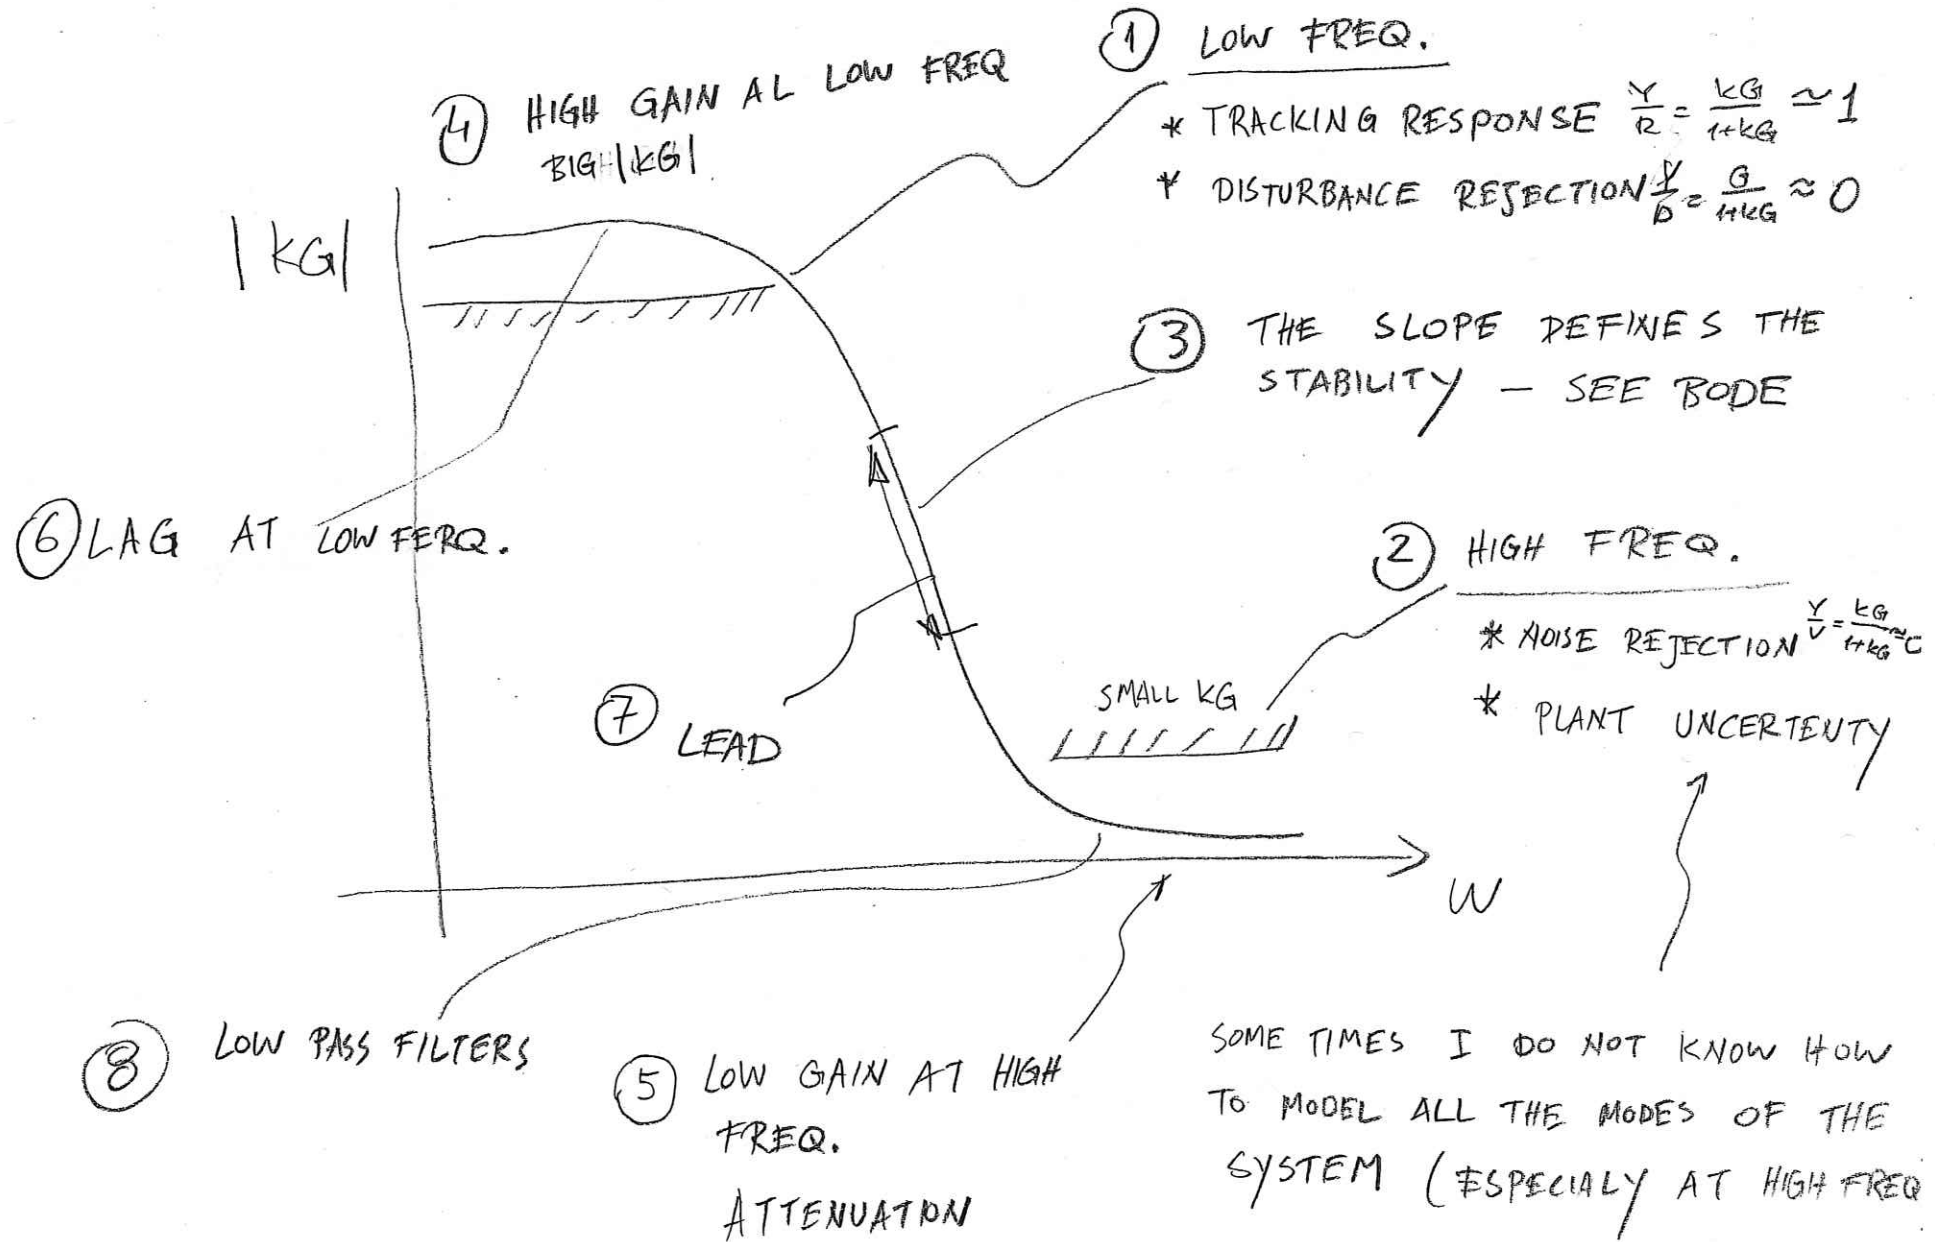 ① LOW FREQ.
* TRACKING RESPONSE Y/R = KG/1+KG ≃ 1
* DISTURBANCE REJECTION Y/D = G/1+KG ≈ 0
④ HIGH GAIN AL LOW FREQ
BIG |KG|
|KG|
③ THE SLOPE DEFINES THE
STABILITY – SEE BODE
⑥ LAG AT LOW FERQ.
② HIGH FREQ.
* NOISE REJECTION Y/V = KG/1+KG ≈
* PLANT UNCERTENTY
SMALL KG
⑦ LEAD
W
⑧ LOW PASS FILTERS
⑤ LOW GAIN AT HIGH
FREQ.
ATTENUATION
SOME TIMES I DO NOT KNOW HOW
TO MODEL ALL THE MODES OF THE
SYSTEM (ESPECIALY AT HIGH FREQ